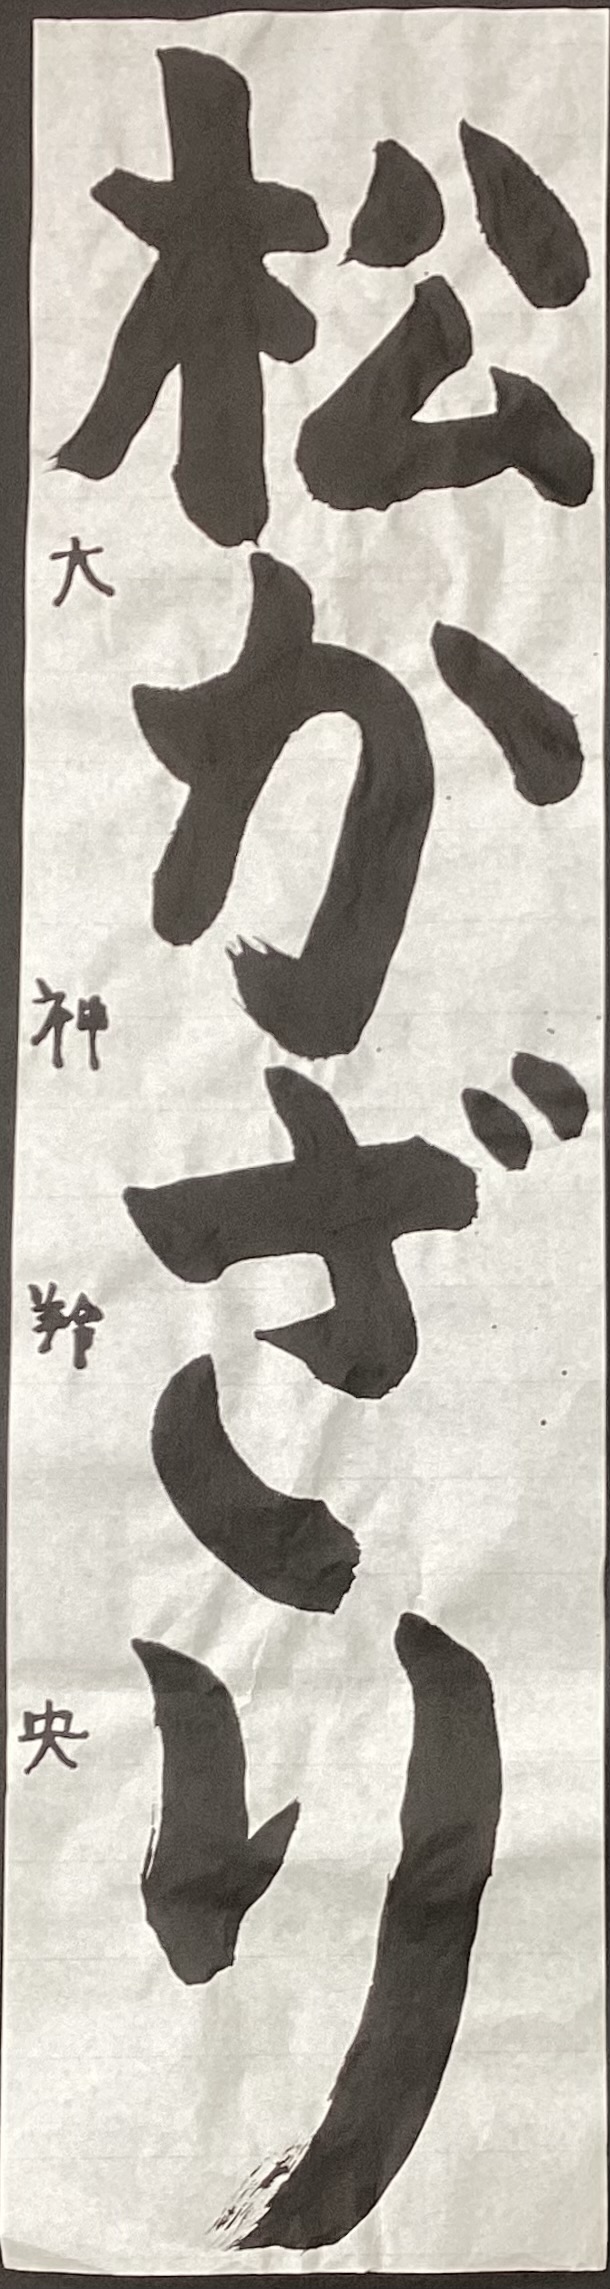 松かざり
大神羚央